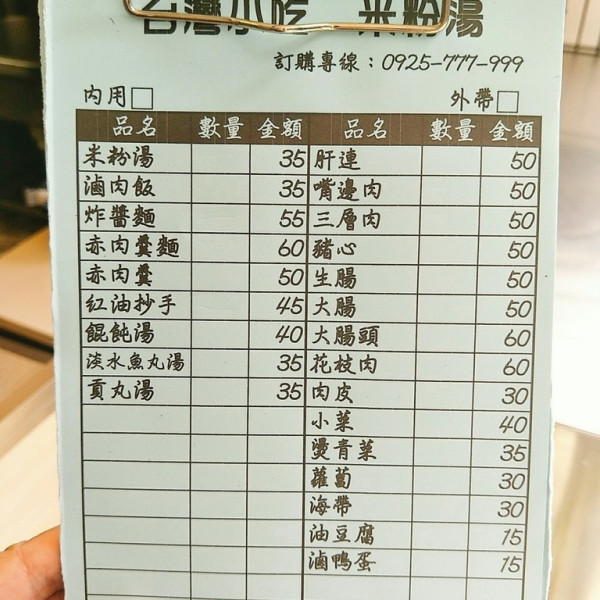 台灣小吃 米粉湯
訂購專線：0925-777-999
內用□ 外帶□
品名 數量 金額 品名 數量 金額
米粉湯 35 肝連 50
滷肉飯 35 嘴邊肉 50
炸醬麵 55 三層肉 50
赤肉羹麵 60 豬心 50
赤肉羹 50 生腸 50
紅油抄手 45 大腸 50
餛飩湯 40 大腸頭 60
淡水魚丸湯 35 花枝肉 60
貢丸湯 35 肉皮 30
小菜 40
燙青菜 35
蘿蔔 30
海帶 30
油豆腐 15
滷鴨蛋 15